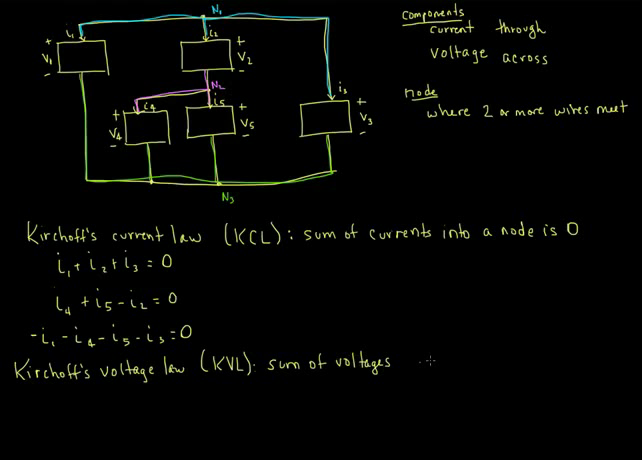 N₁
i₁
i₂
+
V₁
-
+
V₂
-
N₂
i₄
i₅
i₃
+
V₄
-
+
V₅
-
+
V₃
-
N₃
Components
current through
voltage across
node
where 2 or more wires meet
Kirchoff's current law (KCL): sum of currents into a node is 0
i₁ + i₂ + i₃ = 0
i₄ + i₅ - i₂ = 0
-i₁ - i₄ - i₅ - i₃ = 0
Kirchoff's voltage law (KVL): sum of voltages